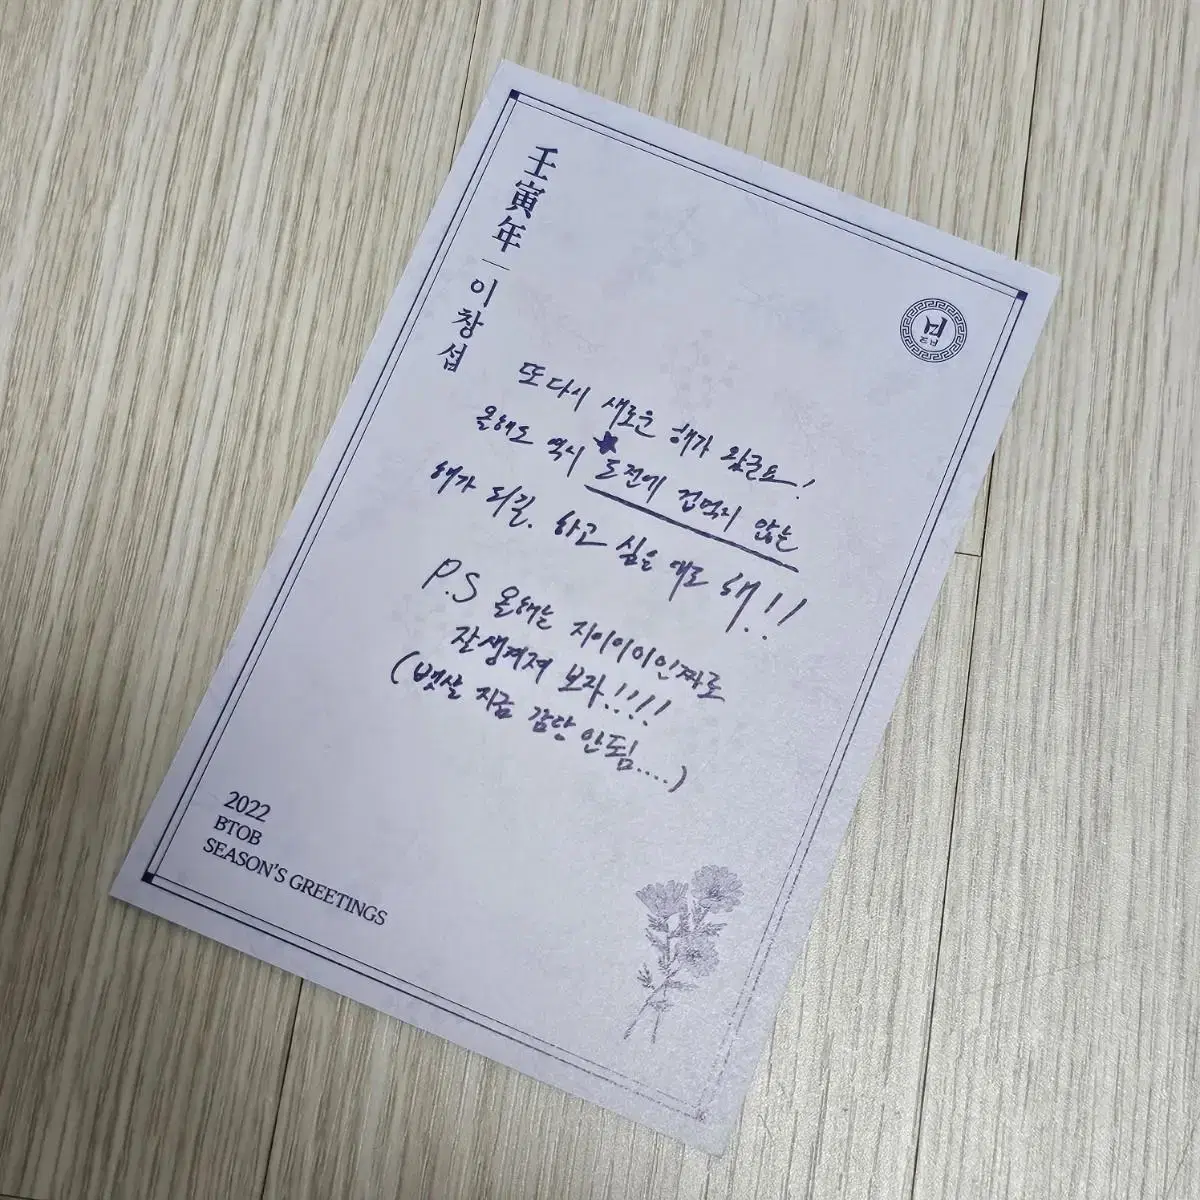 壬寅年 | 이창섭
또다시 새로운 해가 왔군요!
올해도 역시 도전에 겁먹지 않는
해가 되길. 하고 싶은 대로 해!!
P.S 올해는 지이이이인짜로
잘생겨져 보자!!!!
(뱃살 지금 감당 안됨....)
2022
BTOB
SEASON'S GREETINGS